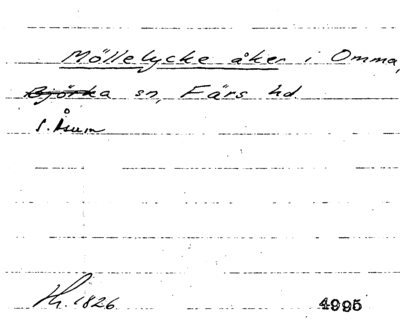 Möllelycke åker i Omma,
Björka sn, Färs hd.
S. Åsum
Hy. 1826 4995